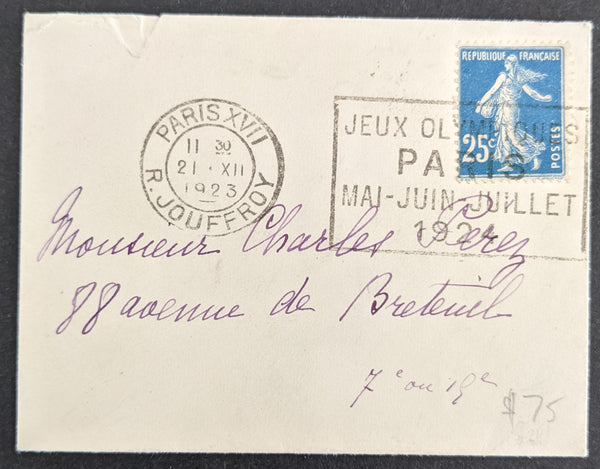 RÉPUBLIQUE FRANÇAISE
25c
POSTES
PARIS XVII
11 30
21 · XII
1923
R. JOUFFROY
JEUX OLYMPIQUES
PARIS
MAI-JUIN-JUILLET
1924
Monsieur Charles Perez
88 avenue de Breteuil
7e ou 15e
$75